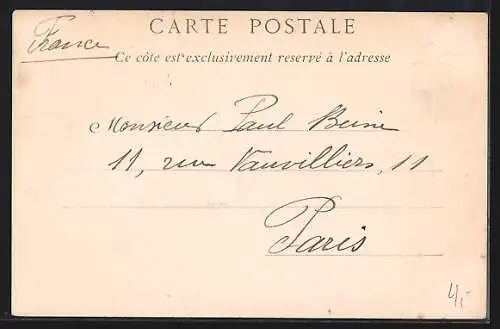 CARTE POSTALE
France
Ce côte est exclusivement reservé à l'adresse
Monsieur Paul
11, rue Vauvilliers, 11
Paris
4,-